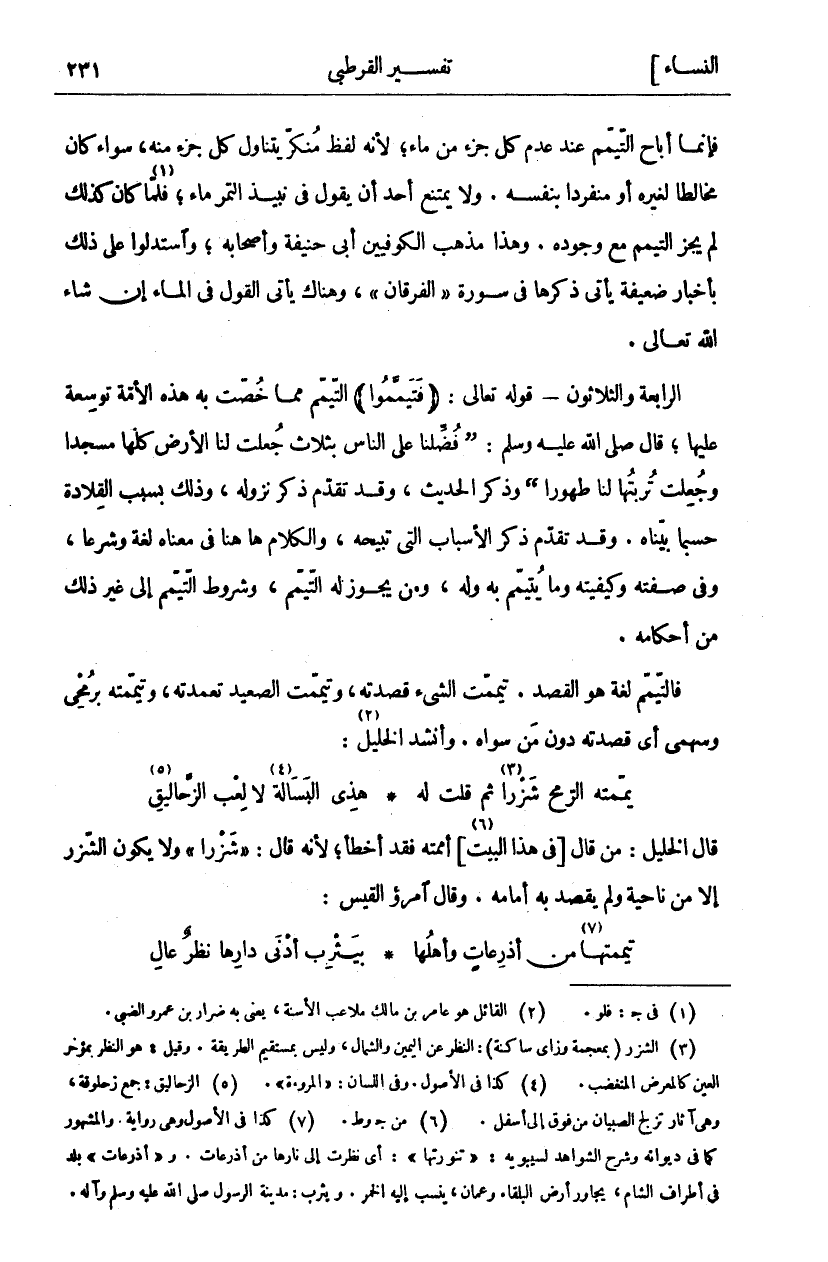 النساء ] تفسير القرطبى ٢٣١
فإنما أباح التّيمّم عند عدم كل جزء من ماء؛ لأنه لفظ مُنكرّ يتناول كل جزء منه، سواء كان
مخالطا لغيره أو منفردا بنفسه . ولا يمتنع أحد أن يقول فى نبيذ التمر ماء ؛ فلمّا (١) كان كذلك
لم يجز التيمم مع وجوده . وهذا مذهب الكوفيين أبى حنيفة وأصحابه ؛ وٱستدلوا على ذلك
بأخبار ضعيفة يأتى ذكرها فى سورة « الفرقان » ، وهناك يأتى القول فى الماء إن شاء
الله تعالى .
الرابعة والثلاثون — قوله تعالى : ﴿ فَتَيَمَّمُوا ﴾ التّيمّم مما خُصّت به هذه الأمّة توسعة
عليها ؛ قال صلى الله عليه وسلم : " فُضِّلنا على الناس بثلاث جُعلت لنا الأرض كلّها مسجدا
وجُعلت تُربتُها لنا طهورا " وذكر الحديث ، وقد تقدّم ذكر نزوله ، وذلك بسبب القِلادة
حسبما بيّناه . وقد تقدّم ذكر الأسباب التى تبيحه ، والكلام ها هنا فى معناه لغة وشرعا ،
وفى صفته وكيفيته وما يُتيمّم به وله ، ومن يجوز له التّيمّم ، وشروط التّيمّم إلى غير ذلك
من أحكامه .
فالتّيمّم لغة هو القصد . تيممّت الشىء قصدته، وتيممّت الصعيد تعمدته، وتيممّته برُمْحِى
وسهمى أى قصدته دون مَن سواه . وأنشد الخليل (٢) :
يمّمته الرمح شَزْرا (٣) ثم قلت له * هذِى البَسَالة (٤) لا لِعْب الزّحاليقِ (٥)
قال الخليل : من قال [فى هذا البيت] (٦) أممته فقد أخطأ؛ لأنه قال : «شَزْرا» ولا يكون الشّزر
إلا من ناحية ولم يقصد به أمامه . وقال ٱمرؤ القيس :
تيممتها (٧) من أذرعاتٍ وأهلُها * بيَثْرِب أدْنَى دارِها نظرٌ عالِ
(١) فى جـ : فلو . (٢) القائل هو عامر بن مالك ملاعب الأسنة ، يعنى به ضرار بن عمرو الضبى .
(٣) الشزر (بمعجمة وزاى ساكنة) : النظر عن اليمين والشمال ، وليس بمستقيم الطريقة . وقيل : هو النظر بمؤخر
العين كالمعرض المتغضب . (٤) كذا فى الأصول . وفى اللسان : «المروءة» . (٥) الزحاليق : جمع زحلوقة ،
وهى آثار تزلج الصبيان من فوق إلى أسفل . (٦) من جـ وط . (٧) كذا فى الأصول وهى رواية . والمشهور
كما فى ديوانه وشرح الشواهد لسيبويه : « تنورتها » : أى نظرت إلى نارها من أذرعات . و « أذرعات » بلد
فى أطراف الشام ، يجاور أرض البلقاء وعمان ، ينسب إليه الخمر . ويثرب : مدينة الرسول صلى الله عليه وسلم وآله .